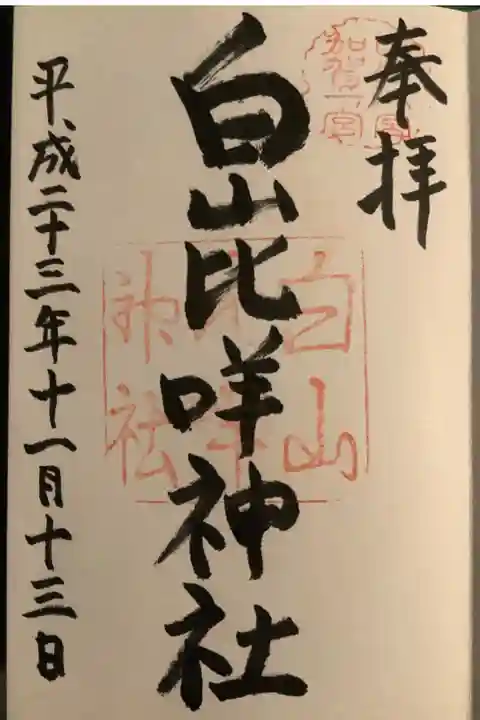 奉拝
加賀一宮
白山比咩神社
白山比咩神社
平成二十三年十一月十三日